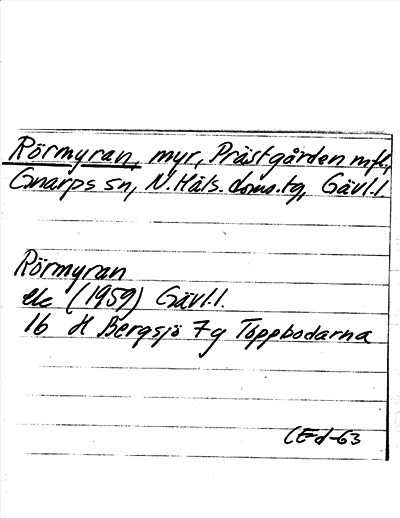 Rörmyran, myr, Prästgården mfl.,
Gnarps sn, N. Häls. doms.tg, Gävl.l.
Rörmyran
Ek (1959) Gävl.l.
16 H Bergsjö 7g Toppbodarna
CEd-63